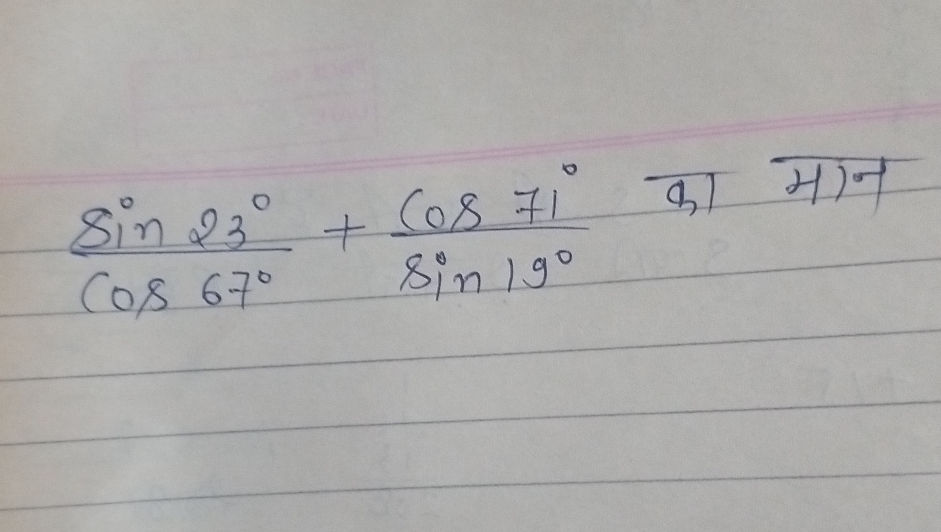 sin 23° / cos 67° + cos 71° / sin 19° का मान